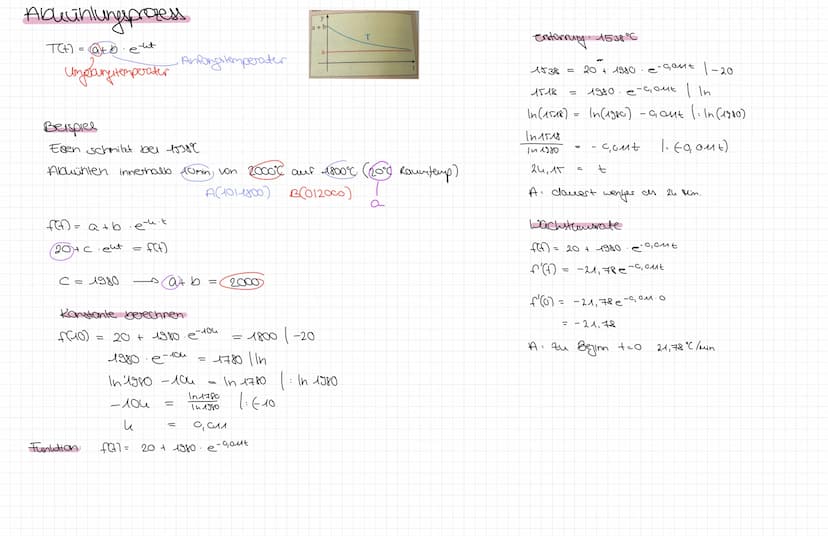 Abkühlungsprozess
T(t) = a + b · e^-kt
Anfangstemperatur
Umgebungstemperatur
y
a + b
T
a
t
Beispiel
Eisen schmilzt bei 1538°C
Abkühlen innerhalb 10min von 2000°C auf 1800°C (20°C Raumtemp)
A(10|1800) B(0|2000) a
f(t) = a + b · e^-k·t
20 + c · e^-kt = f(t)
c = 1980 → a + b = 2000
Konstante berechnen
f(10) = 20 + 1980 · e^-10k = 1800 | -20
1980 · e^-10k = 1780 | ln
ln 1980 - 10k = ln 1780 | : ln 1980
-10k = ln 1780 / ln 1980 | : (-10
k = 0,011
Funktion f(t) = 20 + 1980 · e^-0,011t
1538°C
1538 = 20 + 1980 · e^-0,011t | -20
1518 = 1980 · e^-0,011t | ln
ln(1518) = ln(1980) - 0,011t | : ln(1980)
ln 1518 / ln 1980 = -0,011t | : (-0,011t)
24,15 = t
A: dauert weniger als 24 Min.
Wachstumsrate
f(t) = 20 + 1980 · e^-0,011t
f'(t) = -21,78 e^-0,011t
f'(0) = -21,78 e^-0,011·0
= -21,78
A: Zu Beginn t=0 21,78°C/min